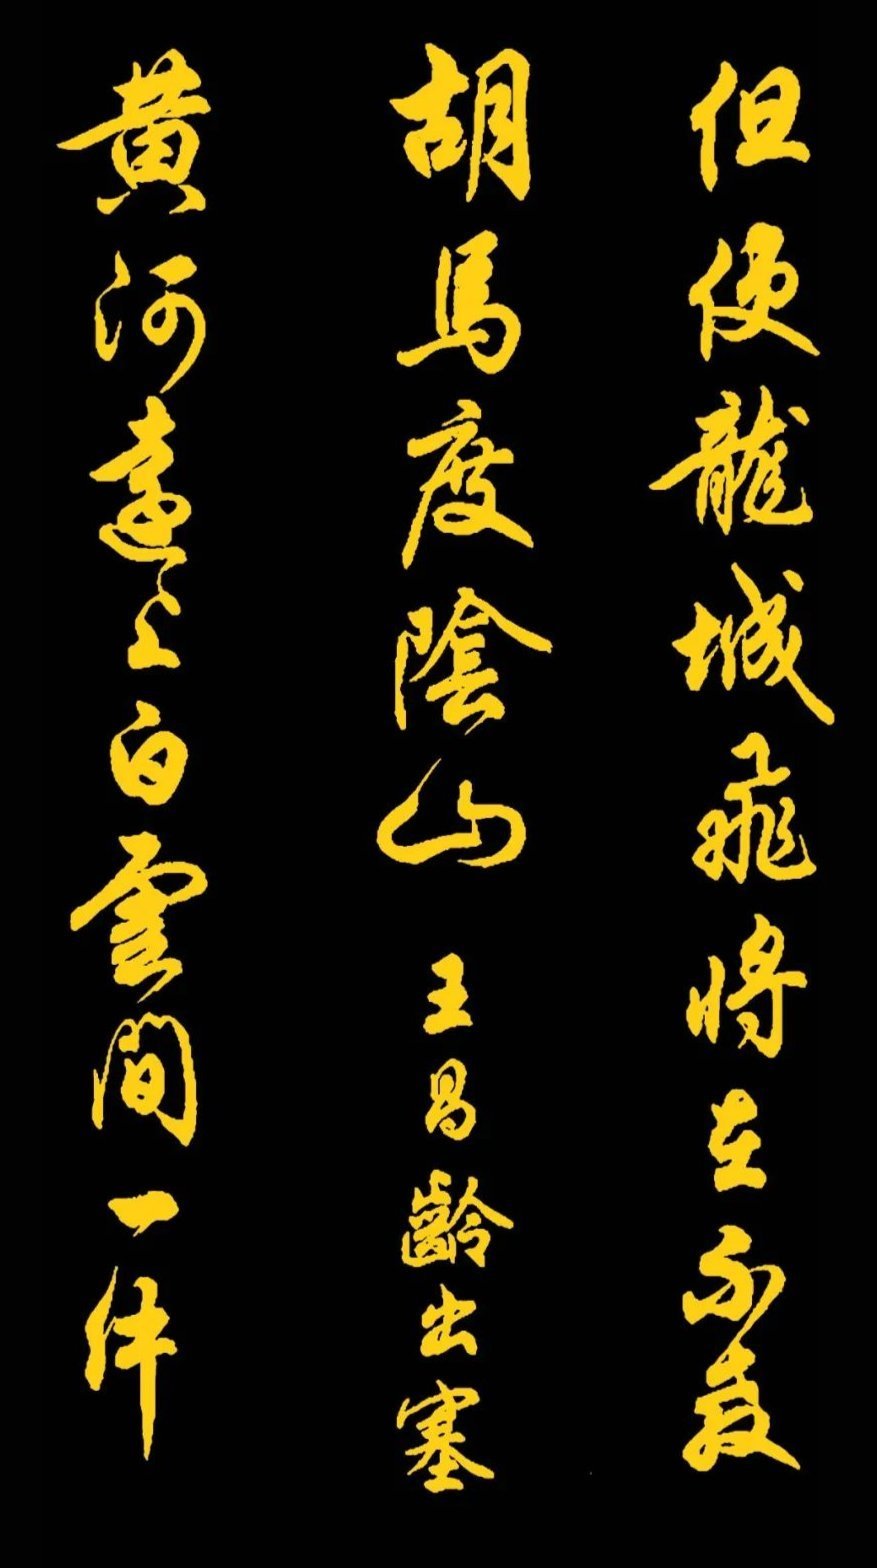 但使龍城飛將在不教
胡馬度陰山 王昌齡出塞
黄河遠上白雲間一片